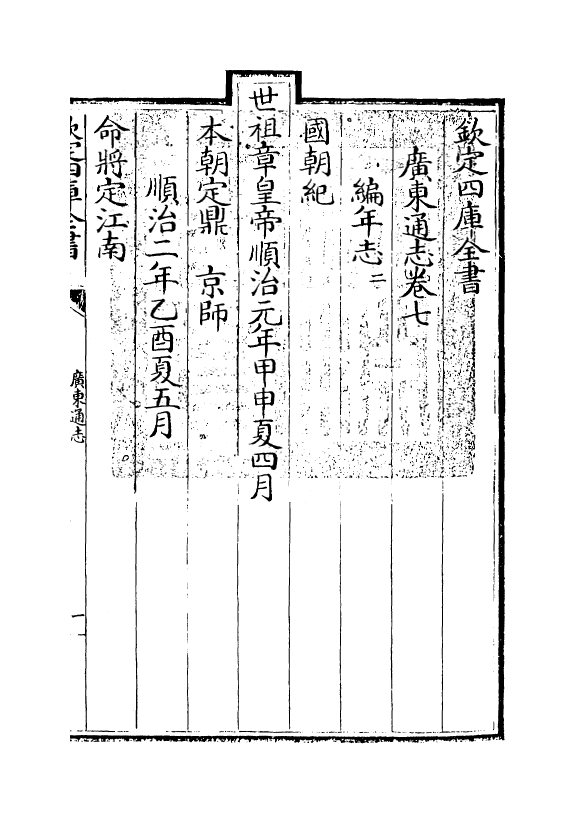 欽定四庫全書
廣東通志卷七
編年志二
國朝紀
世祖章皇帝順治元年甲申夏四月
本朝定鼎　京師
順治二年乙酉夏五月
命將定江南
欽定四庫全書
廣東通志
一